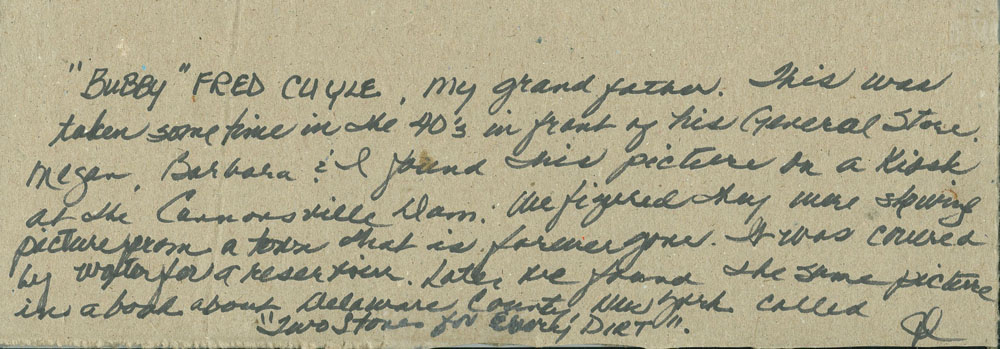 "BUBBY" FRED CUYLE, my grand father. This was
taken sometime in the 40's in front of his General Store.
Megan, Barbara & I found this picture on a Kiosk
at the Cannonsville Dam. We figured they were showing
picture from a town that is forever gone. It was covered
by water for a reservoir. Later we found the same picture
in a book about Delaware County New York called
"Two Stones for Every Dirt".